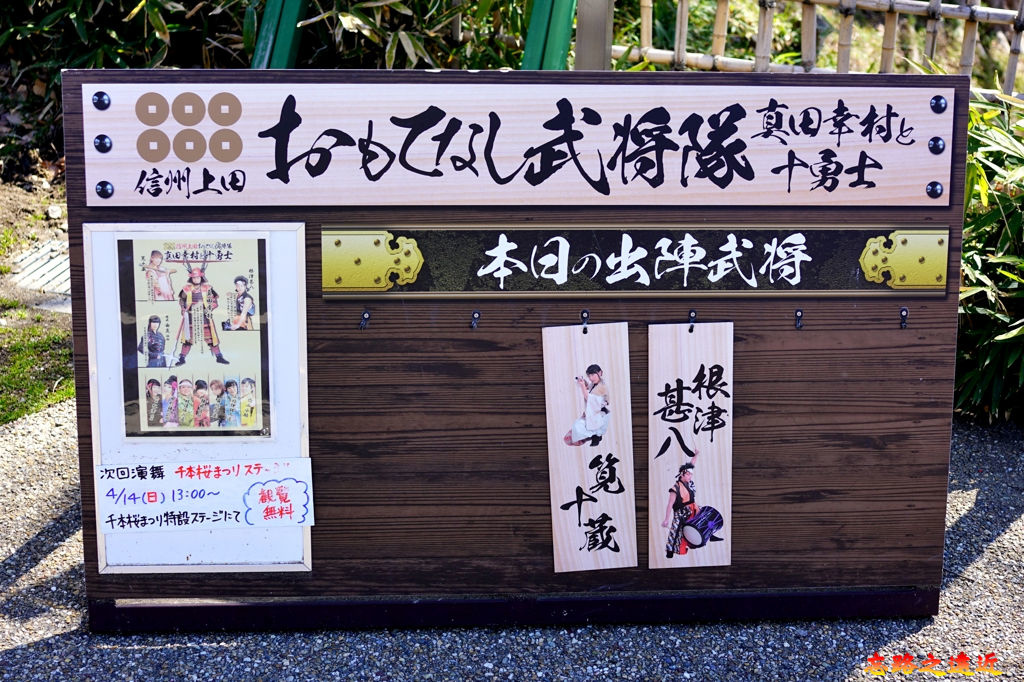 信州上田
おもてなし武将隊
真田幸村と
十勇士
本日の出陣武将
信州上田おもてなし武将隊
真田幸村と十勇士
根津甚八
筧十蔵
根津
甚八
次回演舞 千本桜まつりステージ
4/14(日) 13:00〜
千本桜まつり特設ステージにて
観覧
無料
老路之遠近